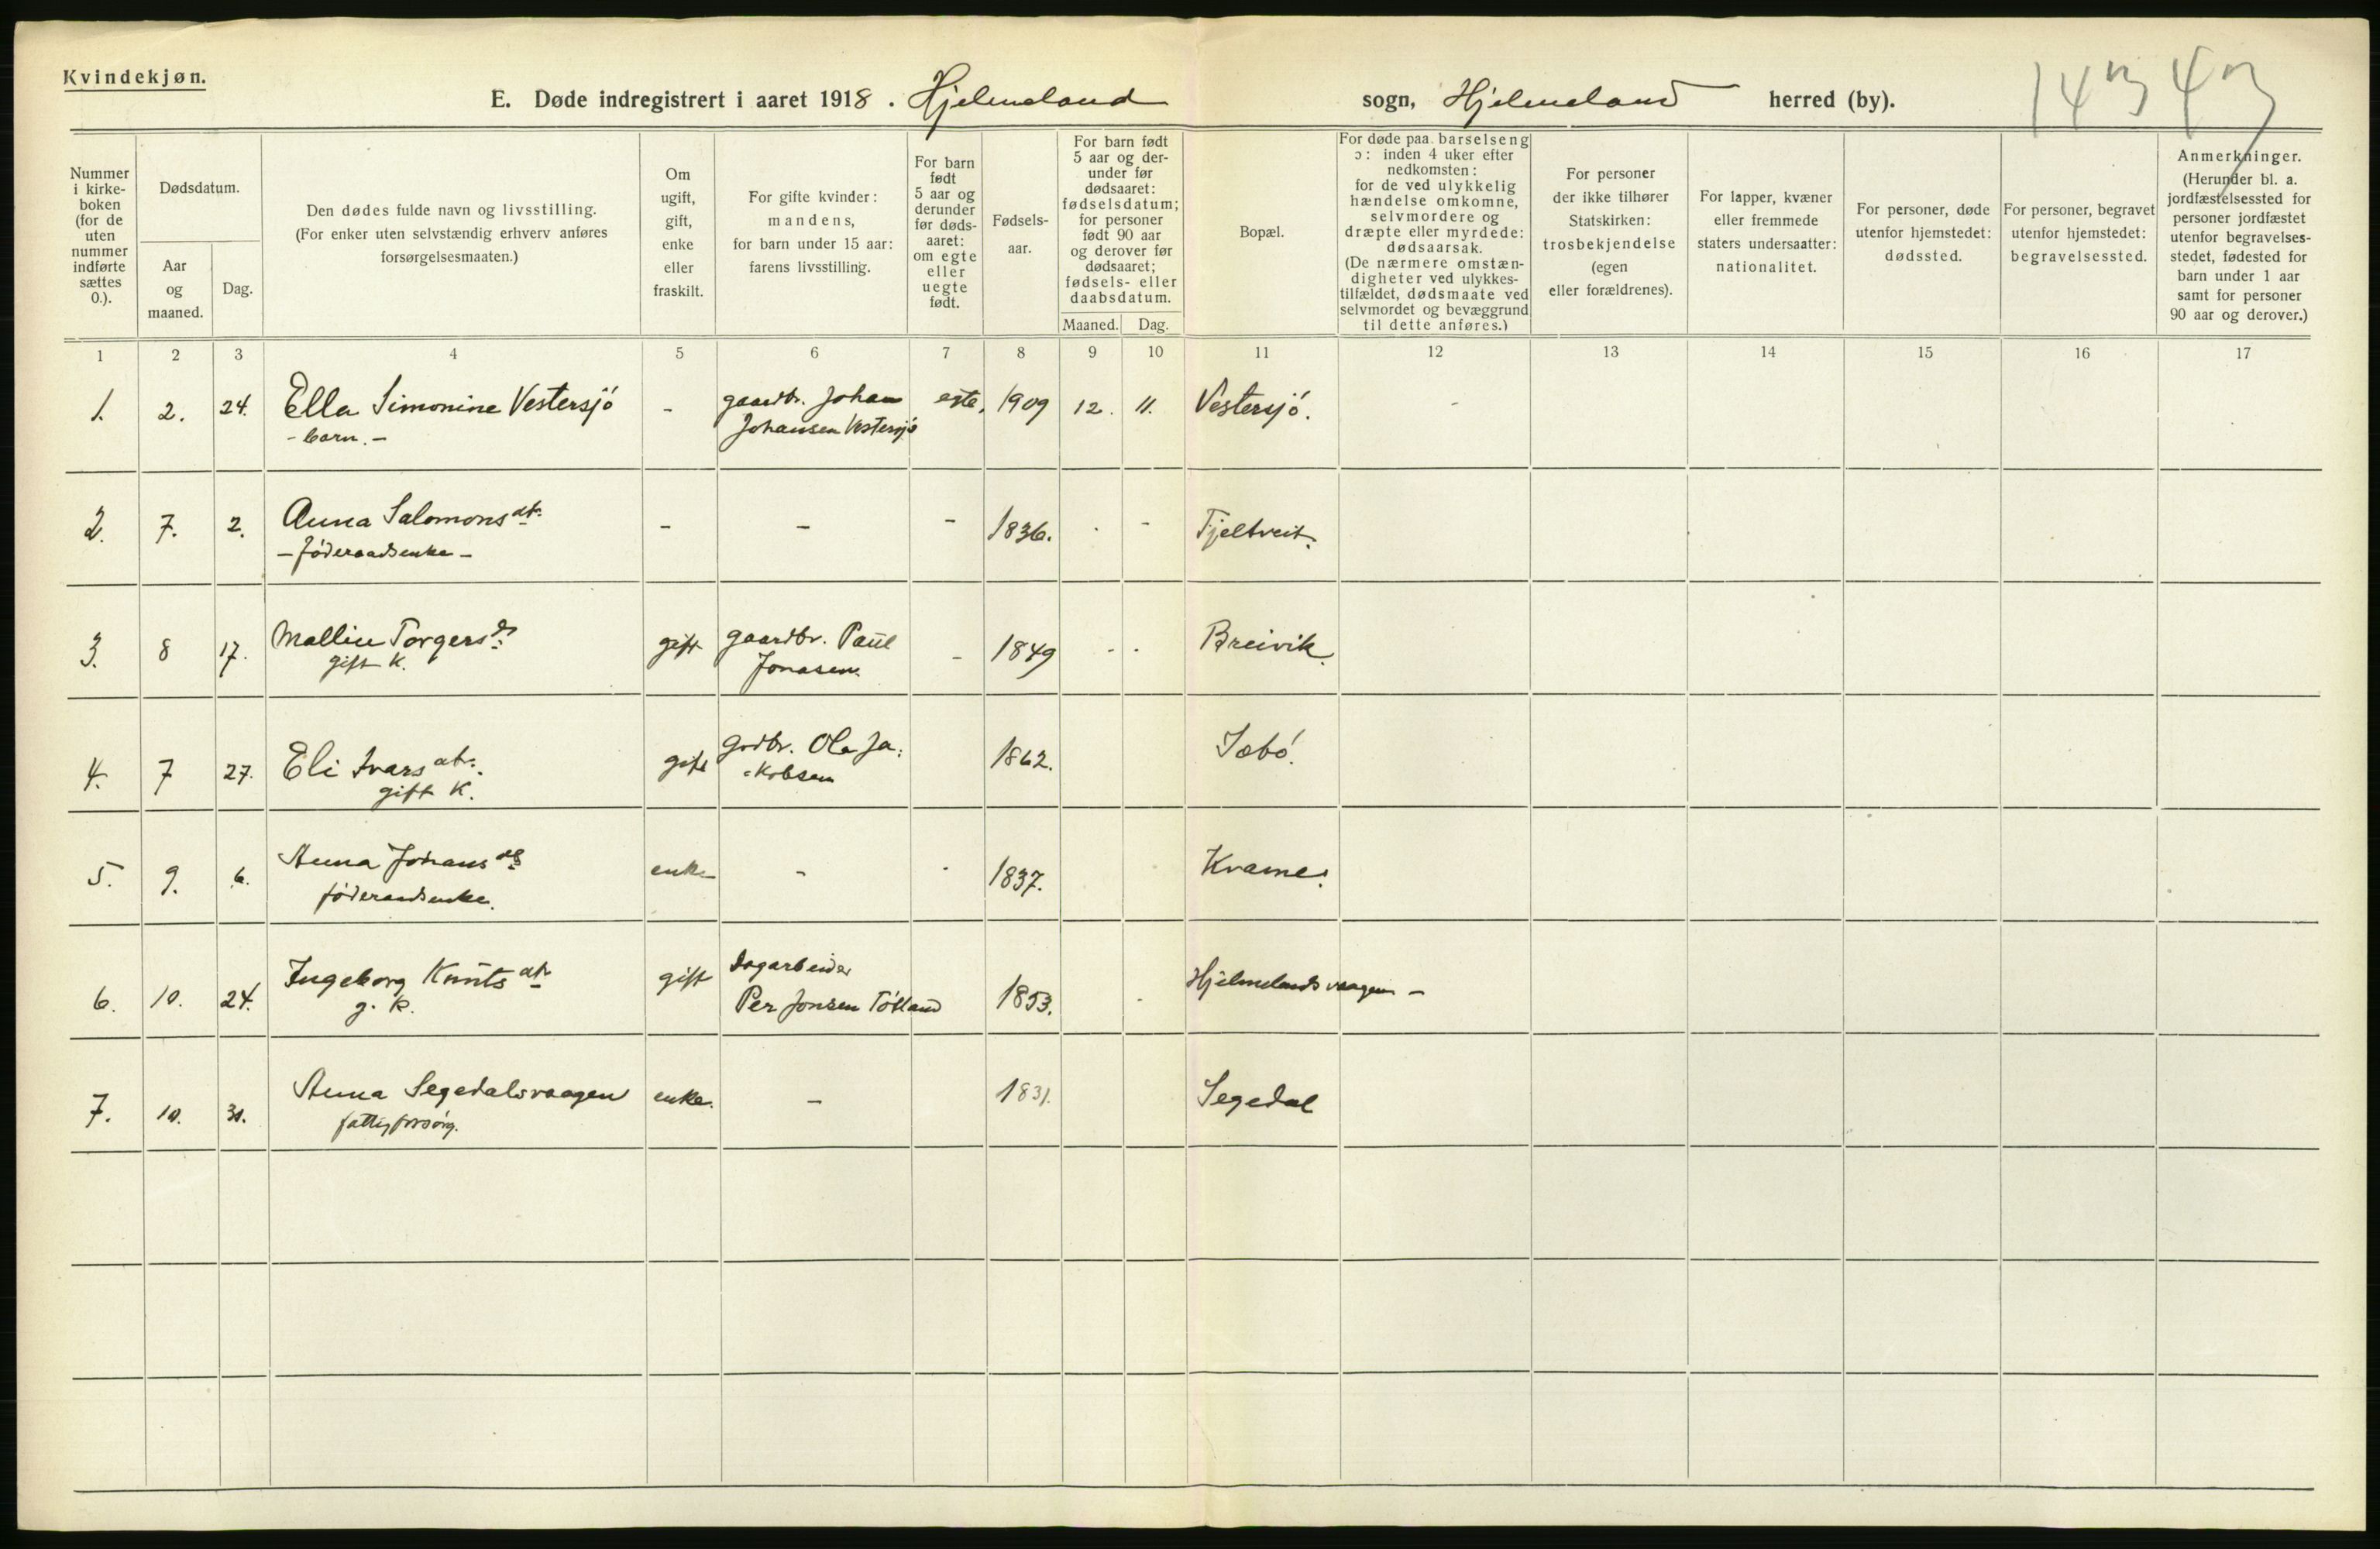 Kvindekjøn.
E. Døde indregistrert i aaret 1918. Hjelmeland sogn, Hjelmeland herred (by).
Nummer
i kirke-
boken
(for de
uten
nummer
indførte
sættes
0.).
Dødsdatum.
Aar
og
maaned.
Dag.
Den dødes fulde navn og livsstilling.
(For enker uten selvstændig erhverv anføres
forsørgelsesmaaten.)
Om
ugift,
gift,
enke
eller
fraskilt.
For gifte kvinder:
mandens,
for barn under 15 aar:
farens livsstilling.
For barn
født
5 aar og
derunder
før døds-
aaret:
om egte
eller
uegte
født.
Fødsels-
aar.
For barn født
5 aar og der-
under før
dødsaaret:
fødselsdatum;
for personer
født 90 aar
og derover før
dødsaaret;
fødsels- eller
daabsdatum.
Maaned. Dag.
Bopæl.
For døde paa barselseng
ɔ: inden 4 uker efter
nedkomsten:
for de ved ulykkelig
hændelse omkomne,
selvmordere og
dræpte eller myrdede:
dødsaarsak.
(De nærmere omstæn-
digheter ved ulykkes-
tilfældet, dødsmaate ved
selvmordet og bevæggrund
til dette anføres.)
For personer
der ikke tilhører
Statskirken:
trosbekjendelse
(egen
eller forældrenes).
For lapper, kvæner
eller fremmede
staters undersaatter:
nationalitet.
For personer, døde
utenfor hjemstedet:
dødssted.
For personer, begravet
utenfor hjemstedet:
begravelsessted.
Anmerkninger.
(Herunder bl. a.
jordfæstelsessted for
personer jordfæstet
utenfor begravelses-
stedet, fødested for
barn under 1 aar
samt for personer
90 aar og derover.)
1 2 3 4 5 6 7 8 9 10 11 12 13 14 15 16 17
1. 2. 24. Ella Simonine Vestersjó - gaardbr. Johan egte, 1909 12. 11. Vestersjó. -
- barn. - Johansen Vestersjó
2. 7. 2. Anna Salomonsdtr. - - - 1836. - - Fjeltveit.
- fóderaadsenke -
3. 8 17. Malline Torgersd. gift gaardbr. Paul - 1849 - - Breivik.
gift K. Jonasen.
4. 7 27. Eli Ivarsdtr. gift grdbr. Ola Ja- 1862. Sæbó.
gift K. -kobsen
5. 9. 6. Anna Johansdtr enke - - 1837. Kvame.
fóderaadsenke.
6. 10. 24. Ingeborg Knutsdtr gift Dagarbeider 1853. - Hjelmelandsvaagen -
g. K. Per Jonsen Tótland
7. 10. 30. Anna Segedalsvaagen enke. - 1831. Segedal
fattigforsórg.